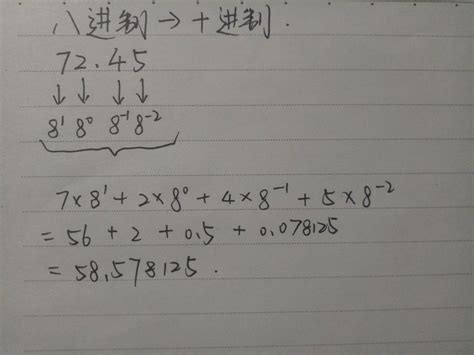 八进制→十进制.
72.45
↓ ↓ ↓ ↓
8¹ 8⁰ 8⁻¹ 8⁻²
7×8¹+2×8⁰+4×8⁻¹+5×8⁻²
=56+2+0.5+0.078125
=58.578125.